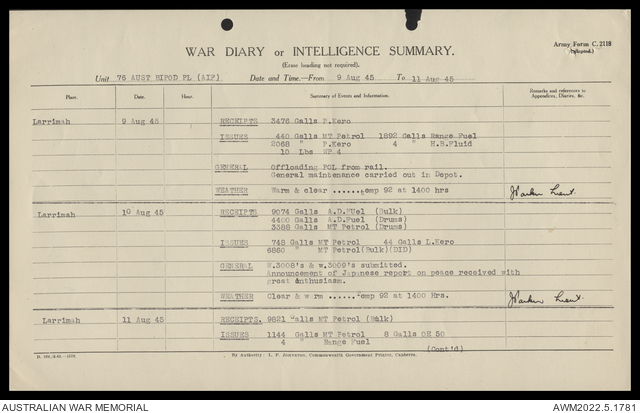 Army Form C. 2118
(Adapted.)
WAR DIARY or INTELLIGENCE SUMMARY.
(Erase heading not required).
Unit 76 AUST BIPOD PL (AIF) Date and Time.—From 9 Aug 45 To 11 Aug 45
Place. Date. Hour. Summary of Events and Information. Remarks and references to Appendices, Diaries, &c.
Larrimah 9 Aug 45 RECEIPTS 3476 Galls P.Kero
ISSUES 440 Galls MT Petrol 1892 Galls Range Fuel
2068 " P.Kero 4 " H.B.Fluid
10 Lbs WP 4
GENERAL Offloading POL from rail.
General maintenance carried out in Depot.
WEATHER Warm & clear ......emp 92 at 1400 hrs
Larrimah 10 Aug 45 RECEIPTS 9074 Galls A.D.FUel (Bulk)
4400 Galls A.D.Fuel (Drums)
3388 Galls MT Petrol (Drums)
ISSUES 748 Galls MT Petrol 44 Galls L.Kero
6860 " MT Petrol(Bulk)(DID)
GENERAL W.3008's & w.3009's submitted.
Announcement of Japanese report on peace received with
great enthusiasm.
WEATHER Clear & w rm ......emp 92 at 1400 Hrs.
Larrimah 11 Aug 45 RECEIPTS. 9821 Galls MT Petrol (Bulk)
ISSUES 1144 Galls MT Petrol 8 Galls OE 50
4 " Range Fuel
(Cont'd)
By Authority: L. F. Johnston, Commonwealth Government Printer, Canberra.
AUSTRALIAN WAR MEMORIAL AWM2022.5.1781